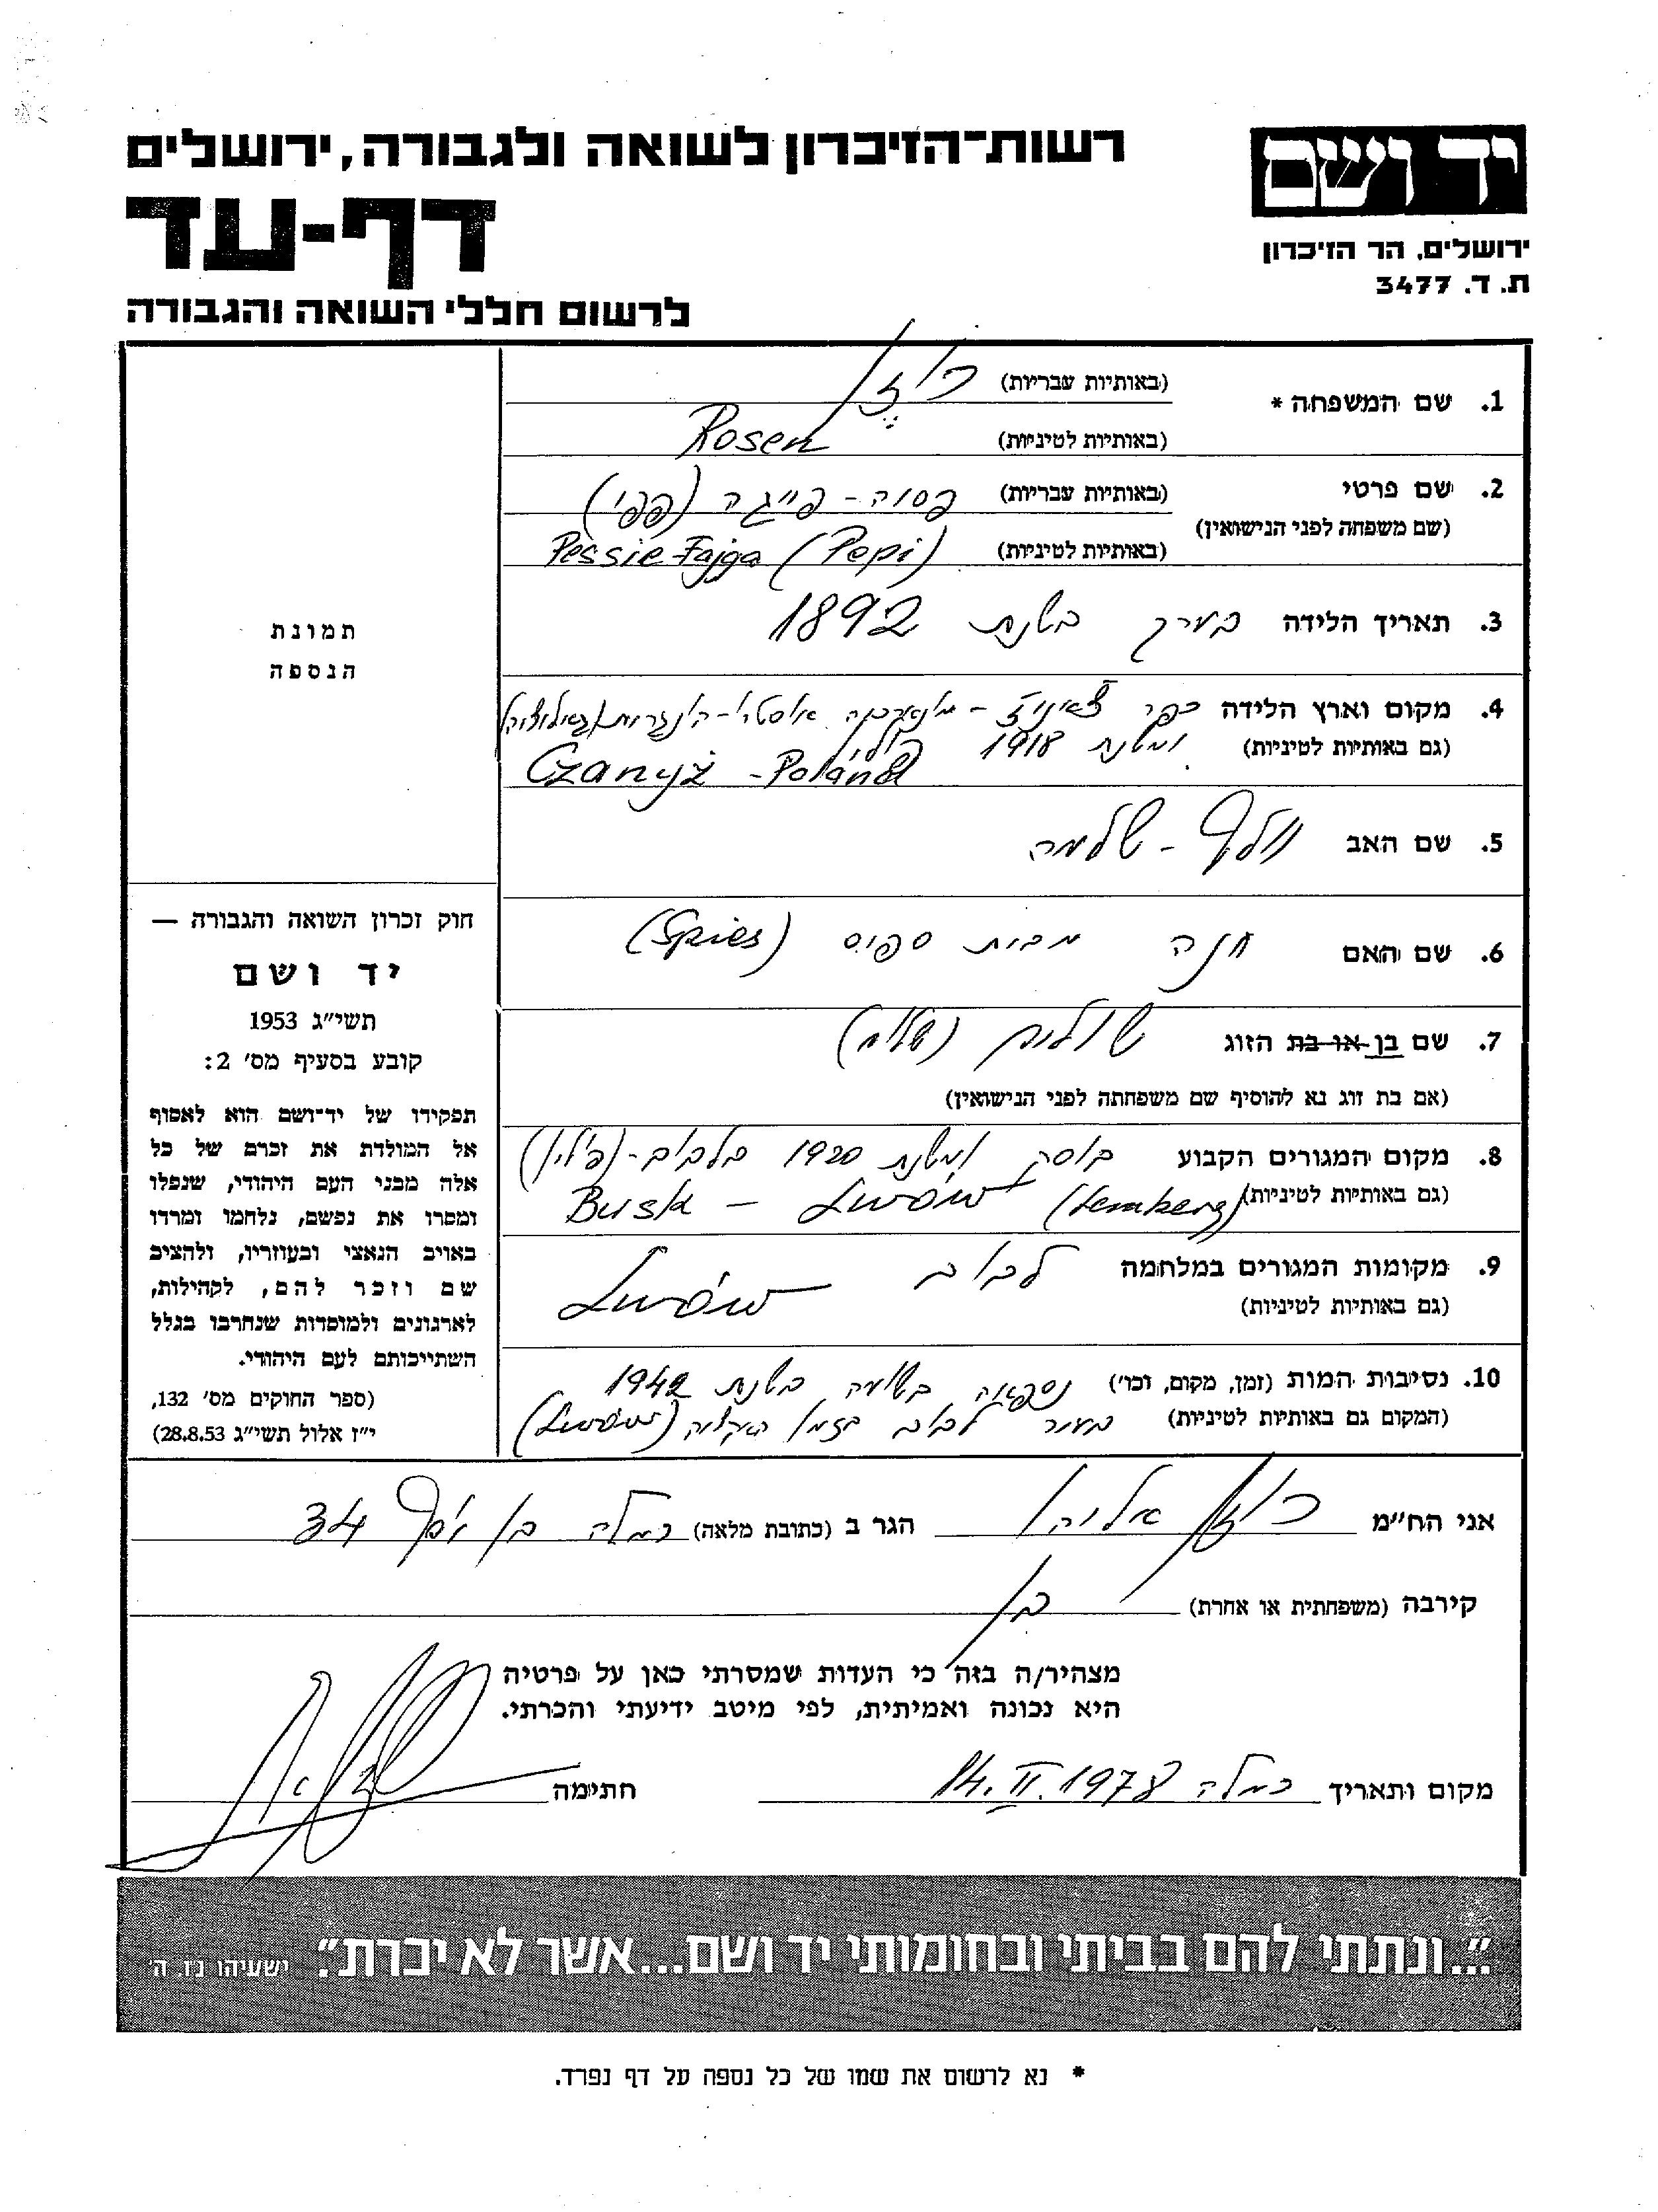 רשות־הזיכרון לשואה ולגבורה, ירושלים
יד ושם
דף-עד
ירושלים, הר הזיכרון
ת. ד. 3477
לרשום חללי השואה והגבורה
1. שם המשפחה * (באותיות עבריות) רוזן
(באותיות לטיניות) Rosen
2. שם פרטי (באותיות עבריות) פסיה - פייגה (פפי)
(שם משפחה לפני הנישואין)
(באותיות לטיניות) Pessie-Fajga (Pepi)
3. תאריך הלידה בערך בשנת 1892
4. מקום וארץ הלידה כפר - מונארכיה אוסטרו-הונגרית
(גם באותיות לטיניות) ומשנת 1918 פולין
Czanyż - Poland
5. שם האב וולף - שלמה
6. שם האם חנה מבית ספיס (Spies)
7. שם בן או בת הזוג שולים (שלום)
(אם בת זוג נא להוסיף שם משפחתה לפני הנישואין)
8. מקום המגורים הקבוע בוסק ומשנת 1920 בלבוב - (פולין)
(גם באותיות לטיניות) Busk - Lwów (Lemberg)
9. מקומות המגורים במלחמה לבוב
(גם באותיות לטיניות) Lwów
10. נסיבות המות (זמן, מקום, וכו') נספתה בשואה בשנת 1942
(המקום גם באותיות לטיניות) בעיר לבוב בזמן האקציה (Lwów)
תמונת
הנספה
חוק זכרון השואה והגבורה —
יד ושם
תשי״ג 1953
קובע בסעיף מס' 2:
תפקידו של יד־ושם הוא לאסוף
אל המולדת את זכרם של כל
אלה מבני העם היהודי, שנפלו
ומסרו את נפשם, נלחמו ומרדו
באויב הנאצי ובעוזריו, ולהציב
שם וזכר להם, לקהילות,
לארגונים ולמוסדות שנחרבו בגלל
השתייכותם לעם היהודי.
(ספר החוקים מס' 132,
י״ז אלול תשי״ג 28.8.53)
אני הח״מ רוזן אליהו הגר ב (כתובת מלאה) רמלה בן יוסף 34
קירבה (משפחתית או אחרת) בן
מצהיר/ה בזה כי העדות שמסרתי כאן על פרטיה
היא נכונה ואמיתית, לפי מיטב ידיעתי והכרתי.
מקום ותאריך רמלה 14.II.1978 חתימה
״...ונתתי להם בביתי ובחומותי יד ושם...אשר לא יכרת״. ישעיהו נו, ה'
* נא לרשום את שמו של כל נספה על דף נפרד.